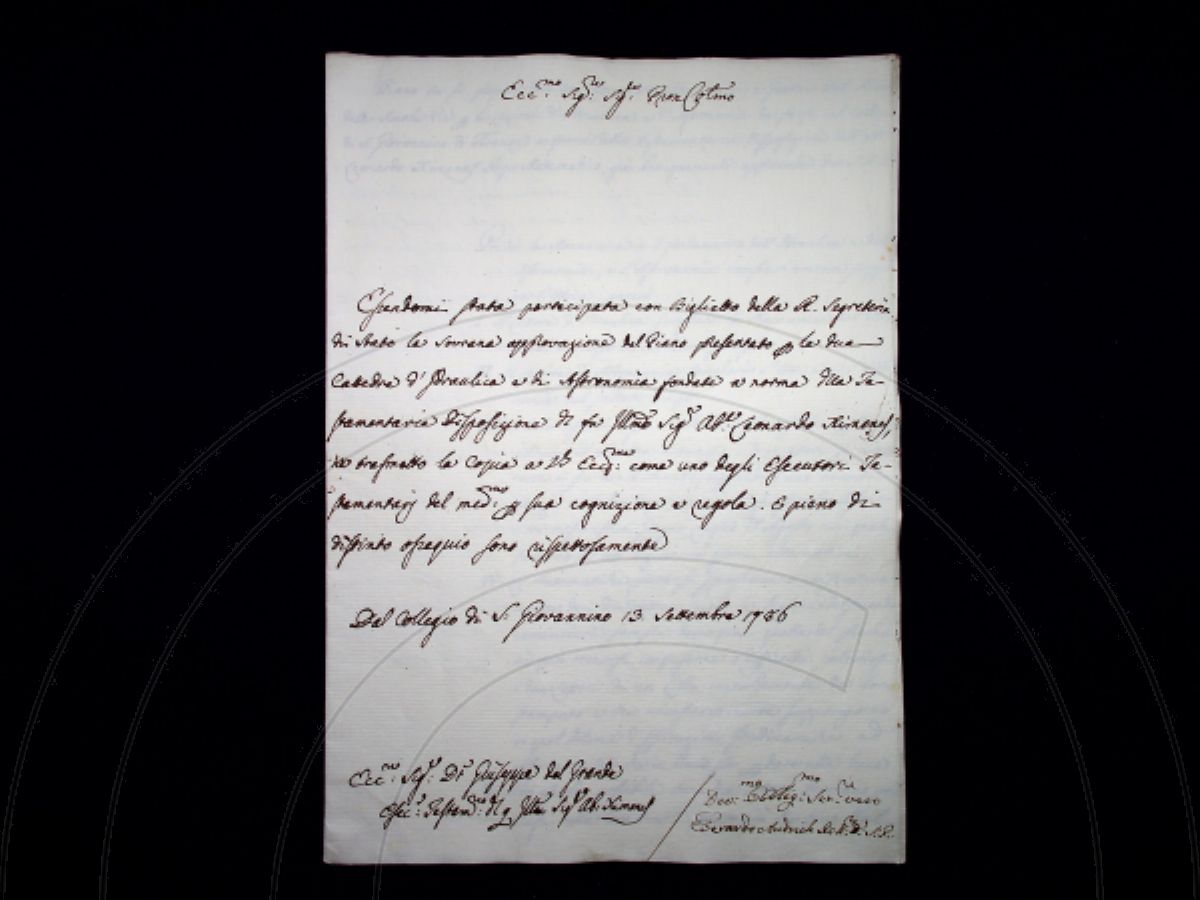 Ecc.mo Sig.re Sig.re Pron Col.mo
Essendomi stata participata con Biglietto della R. Segreteria
di Stato la Sovrana approvazione del Piano presentato p le due
Cattedre d'Idraulica e di Astronomia fondate a norma della Te-
stamentaria Disposizione di fu Illmo Sig.r Ab.e Leonardo Ximenes,
ne trasmetto la Copia a V.S. Ecc.ma come uno degli Esecutori Te-
stamentarj del med.mo p sua cognizione e regola. E pieno di
distinto ossequio sono rispettosamente
Dal Collegio di S. Giovannino 13 Settembre 1786
Ecc.mo Sig.r D.r Giuseppe del Grande
Esec.e Testam.rio del q. Illmo Sig.r Ab. Ximenes
Dev.mo Obblig.mo Ser.e vero